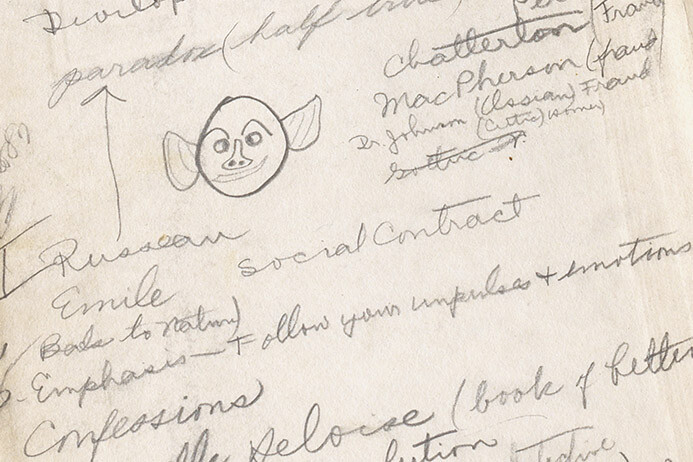 Develop
paradox (half true)
Chatterton (Fraud
MacPherson (fraud
Dr. Johnson (Ossian) Fraud
(Celtic) Homer)
Gothic
Russeau Social Contract
Emile
(Back to Nature)
Emphasis — Follow your impulses + emotions
Confessions
Heloise (book of letter